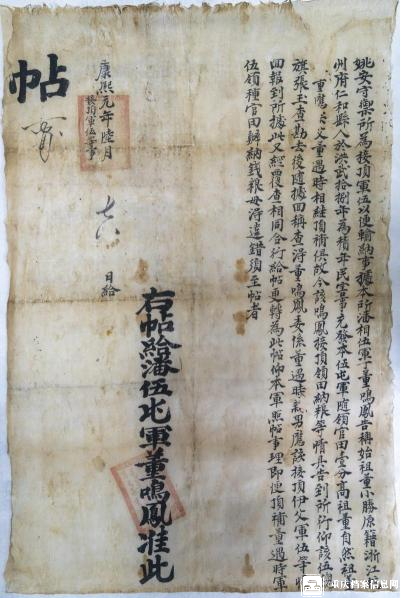 姚安守禦所為接頂軍伍以便輸納事據本所潘相伍軍丁董鳴鳳告稱始祖董小勝原籍浙江
州府仁和縣人於洪武拾捌年為積年民害事充發本伍屯軍隨領官田壹分高祖董自然祖
董鷹父董遇時相繼頂補俱故今該鳴鳳接頂領田納粮等情具告到所行仰該伍
旗張玉查勘去後隨據回稱查得董鳴鳳委係董遇時親男應該接頂伊父軍伍等
回報到所據此又經覆查相同合行給帖更轉為此帖仰本軍照帖事理即便頂補董遇時軍
伍領種官田辦納錢粮毋得違錯須至帖者
康熙元年陸月
日給
接頂軍伍等事
帖
右帖給潘伍屯軍董鳴鳳准此
重庆档案信息网